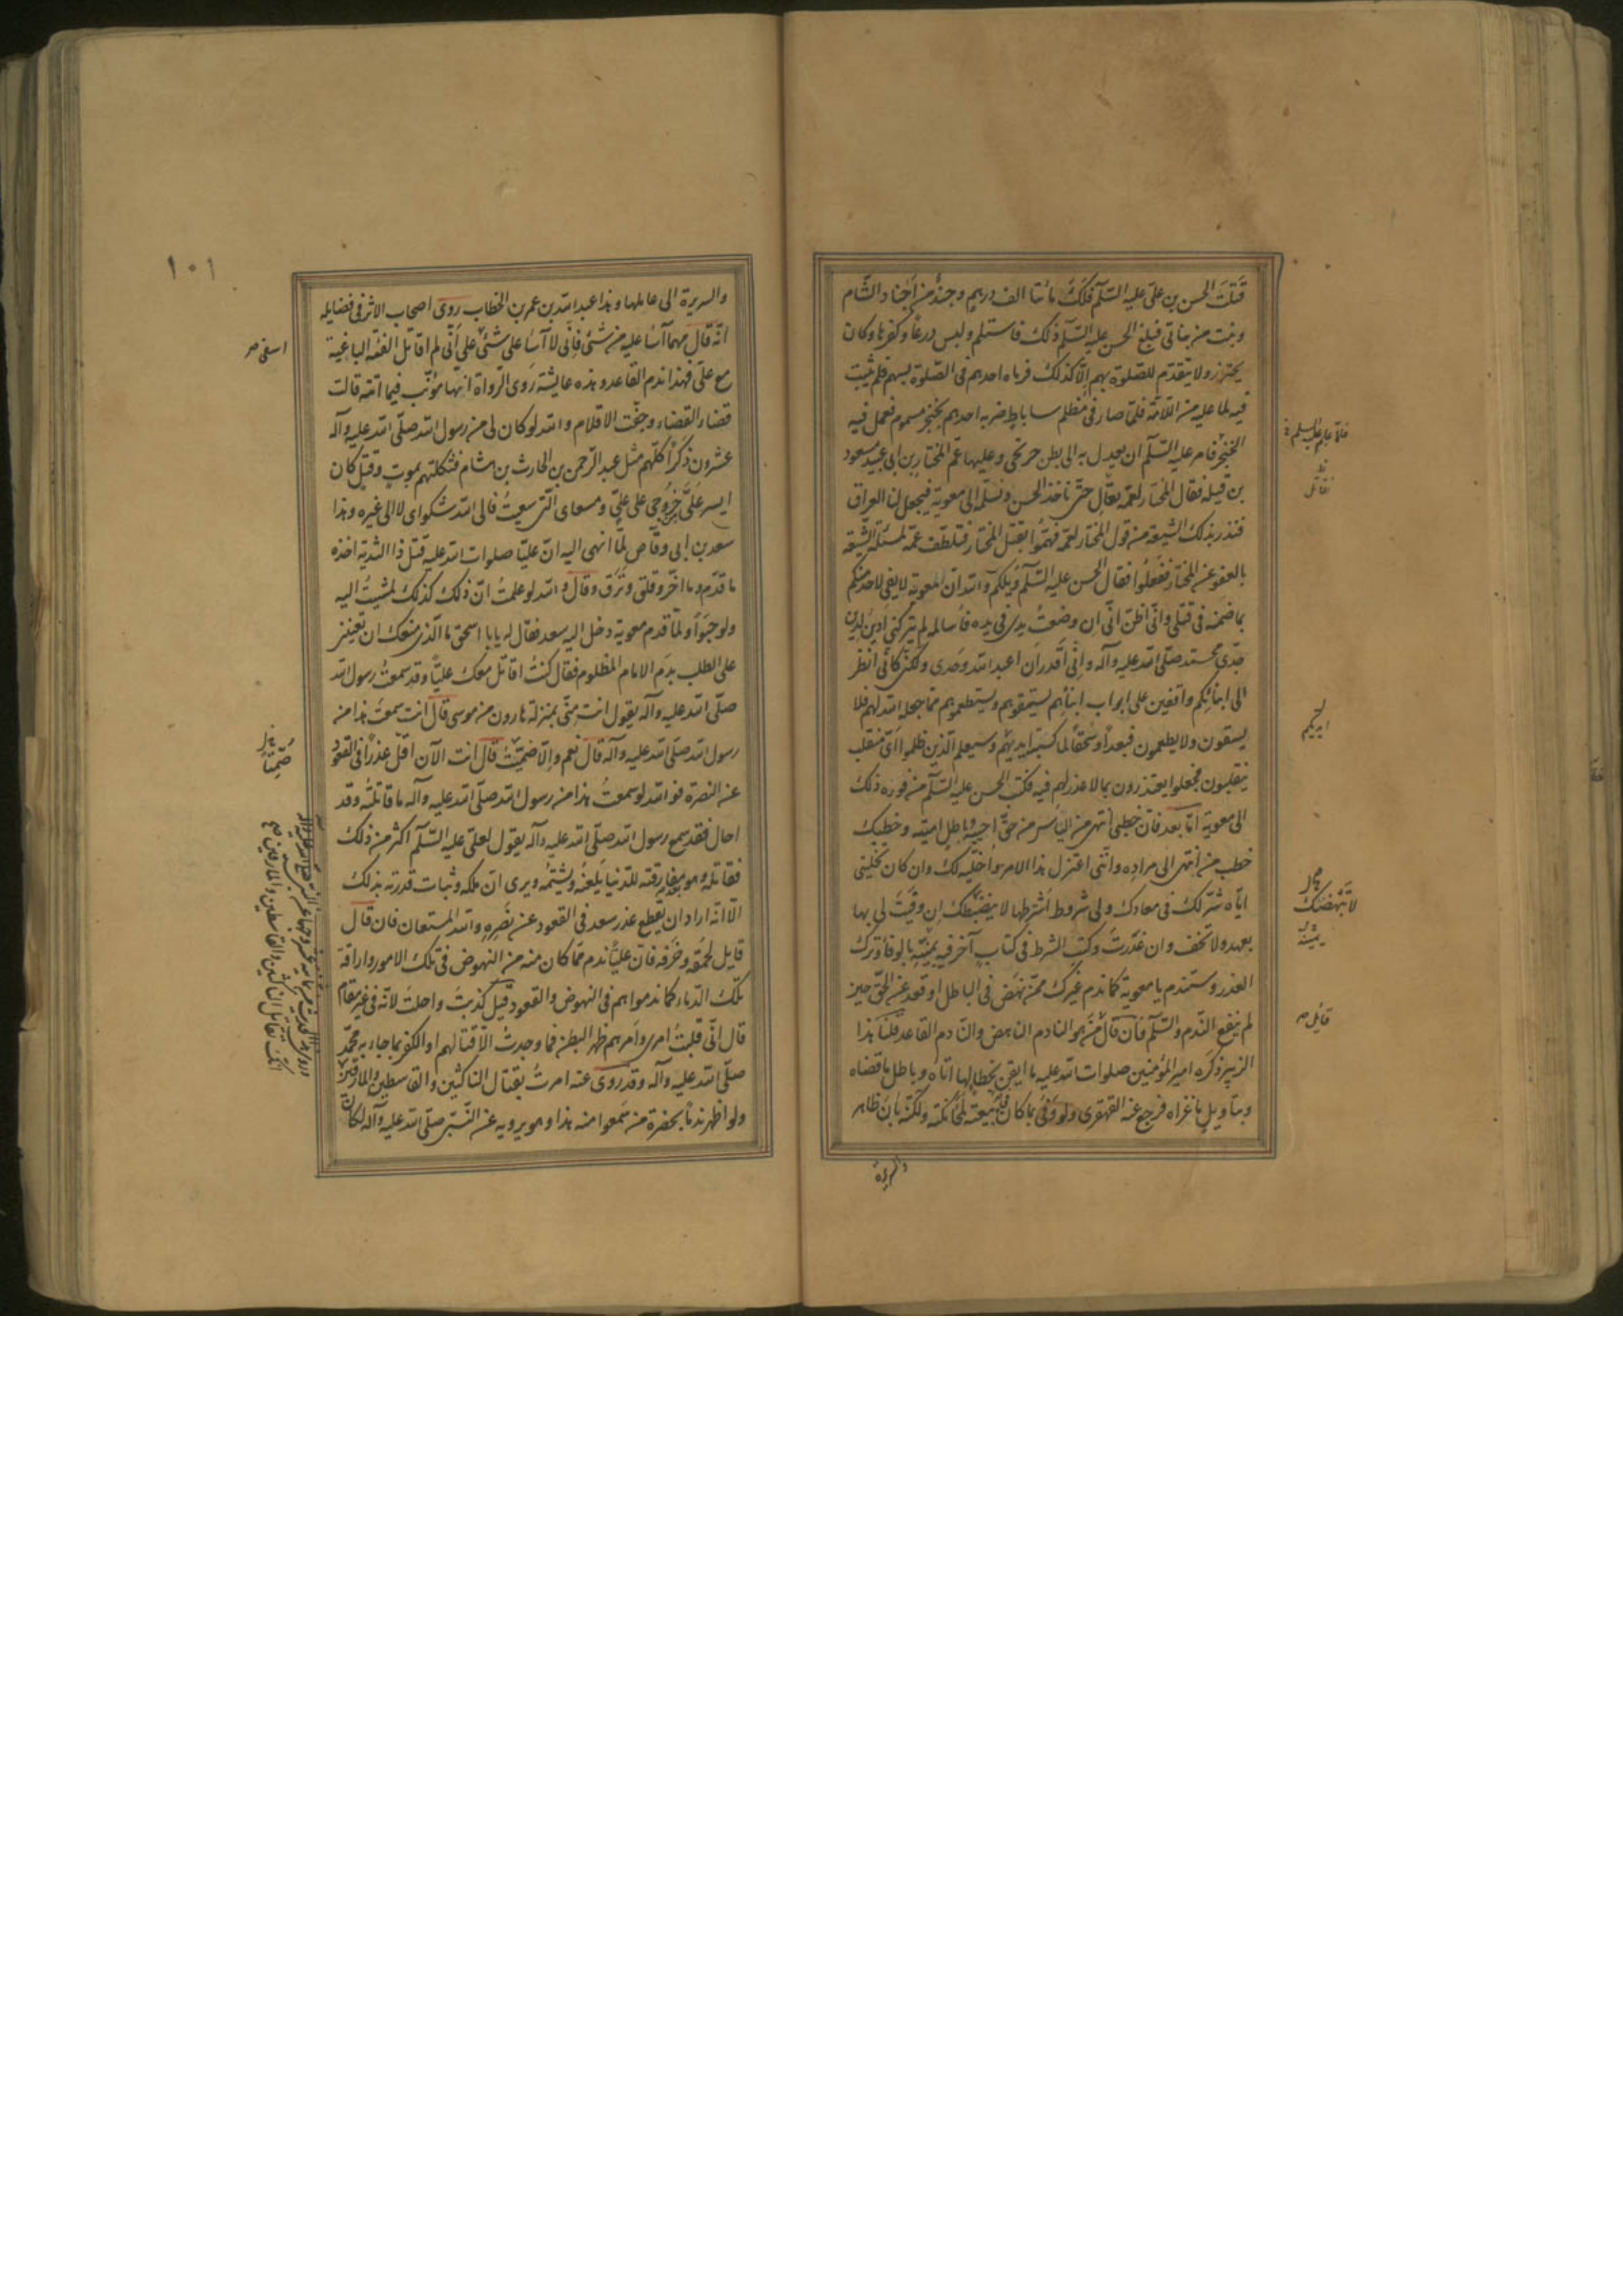 قتلت الحسن بن علي عليه السّلم فلك مائتا الف درهم وجند من اجناد الشّام
وبنت من بناتي فبلغ الحسن عليه السّلم ذلك فاستلم ولبس درعا وكفرها وكان
يحترز ولا يتقدّم للصّلوة بهم الّا كذلك فرماه احدهم في الصّلوة بسهم فلم يثبت
فيه لما عليه من اللّامة فلمّا صار في مظلم ساباط ضربه احدهم بخنجر مسموم فعمل فيه
الخنجر فامر عليه السّلم ان يعدل به الى بطن جريحى وعليها عمّ المختار بن ابي عبيد مسعود
بن قيله فقال المختار لعمّه تعال حتّى ناخذ الحسن ونسلمه الى معوية فيجعل لنا العراق
فنذر بذلك الشيعة من قول المختار لعمّه فهمّوا بقتل المختار فتلطّف عمّه لمسئلة الشّيعة
بالعفو عن المختار ففعلوا فقال الحسن عليه السّلم ويلكم والله ان معوية لا يفي لاحد منكم
بما ضمنه في قتلي وانّي اظنّ انّي ان وضعت يدي في يده فاسالمه لم يتركني ادين لدين
جدّي محمّد صلّى الله عليه وآله وانّي اقدر ان اعبد الله وحدي ولكنّي كانّي انظر
الى ابنائكم واقفين على ابواب ابنائهم يستسقونهم ويستطعمونهم بما جعله الله لهم فلا
يسقون ولا يطعمون فبعدا وسحقا لما كسبته ايديهم وسيعلم الّذين ظلموا ايّ منقلب
ينقلبون فجعلوا يعتذرون بما لا عذر لهم فيه فكتب الحسن عليه السّلم من فوره ذلك
الى معوية امّا بعد فان خطبي انتهى من الياس من حقّ احييه وباطل اميته وخطبك
خطب من انتهى الى مراده وانّني اعتزل هذا الامر واخلّيه لك وان كان تخليتي
ايّاه شرّ لك في معادك ولي شروط اشترطها لا ينضبطك ان وفيت لي بها
بعهد ولا تخف وان غدرت وكتب الشرط في كتاب آخر فيه يمنّيه بالوفا وترك
الغدر وستندم يا معوية كما ندم غيرك ممّن نهض في الباطل او قعد عن الحقّ حين
لم ينفع النّدم والسّلم فان قال من هو النادم الناهض والنّادم القاعد قلنا هذا
الزبير ذكّره امير المؤمنين صلوات الله عليه ما ايقن بخطائها اتاه وباطل ما قضاه
وبتاويل ما عزاه فرجع عنه القهقرى ولو وفى بما كان في بيعته لمحا نكثه ولكنّه بان ظاهر
والسريرة
فلمّا عليه السلم
تعال
ايديكم
يمنيه
قائل
١٠١
والسريرة الى عاملها وهذا عبد الله بن عمر بن الخطاب روى اصحاب الاثر في فضايله
انّه قال مهما آسا عليه من شئ فانّي لا آسا على شئ على انّي لم اقاتل الفئة الباغية
مع عليّ فهذا ندم القاعد وهذه عايشة روى الرّواة انها مؤنّب فيما اتته قالت
قضاء القضاء وجفّت الاقلام والله لو كان لي من رسول الله صلّى الله عليه وآله
عشرون ذكرا كلّهم مثل عبد الرّحمن بن الحارث بن هشام فثكلتهم بموت وقتل كان
ايسر عليّ خروجي على عليّ ومسعاي الّتي سعيت فالى الله شكواي لا الى غيره وهذا
سعد بن ابي وقّاص لمّا انهى اليه انّ عليّا صلوات الله عليه قتل ذا الثدية اخذه
ما قدّم وما اخّر وقلق ونزق وقال والله لو علمت انّ ذلك كذلك لمشيت اليه
ولو حبوا ولمّا قدم معوية دخل اليه سعد فقال له يا با اسحق ما الّذي منعك ان تعينني
على الطلب بدم الامام المظلوم فقال كنت اقاتل معك عليّا وقد سمعت رسول الله
صلّى الله عليه وآله يقول انت منّي بمنزلة هارون من موسى قال انت سمعت هذا من
رسول الله صلّى الله عليه وآله قال نعم والّا صمّتا قال انت الآن اقلّ عذرا في القعود
عن النصرة فوالله لو سمعت هذا من رسول الله صلّى الله عليه وآله ما قاتلته وقد
احال فقد سمع رسول الله صلّى الله عليه وآله يقول لعلي عليه السّلم اكثر من ذلك
فقاتله وهو بعد مفارقته للدّنيا يلعنه ويشتمه ويرى ان ملكه وثبات قدرته بذلك
الّا انّه اراد ان يقطع عذر سعد في القعود عن نصره والله المستعان فان قال
قايل لحمقه وخرفه فان عليّا ندم ممّا كان منه من النهوض في تلك الامور واراقة
تلك الدّماء كما ندموا هم في النهوض والقعود قيل كذبت واحلت لانّه في غير مقام
قال انّي قلّبت امري وامرهم ظهر البطن فما وجدت الّا قتالهم او الكفر بما جاء به محمّد
صلّى الله عليه وآله وقد روى عنه امرت بقتال الناكثين والقاسطين والمارقين
ولو اظهر ندما بحضرة من سمعوا منه هذا وهو يرويه عن النّبيّ صلّى الله عليه وآله لكان
اسفي
صمّتا
انّك تقاتل الناكثين والقاسطين والمارقين صح